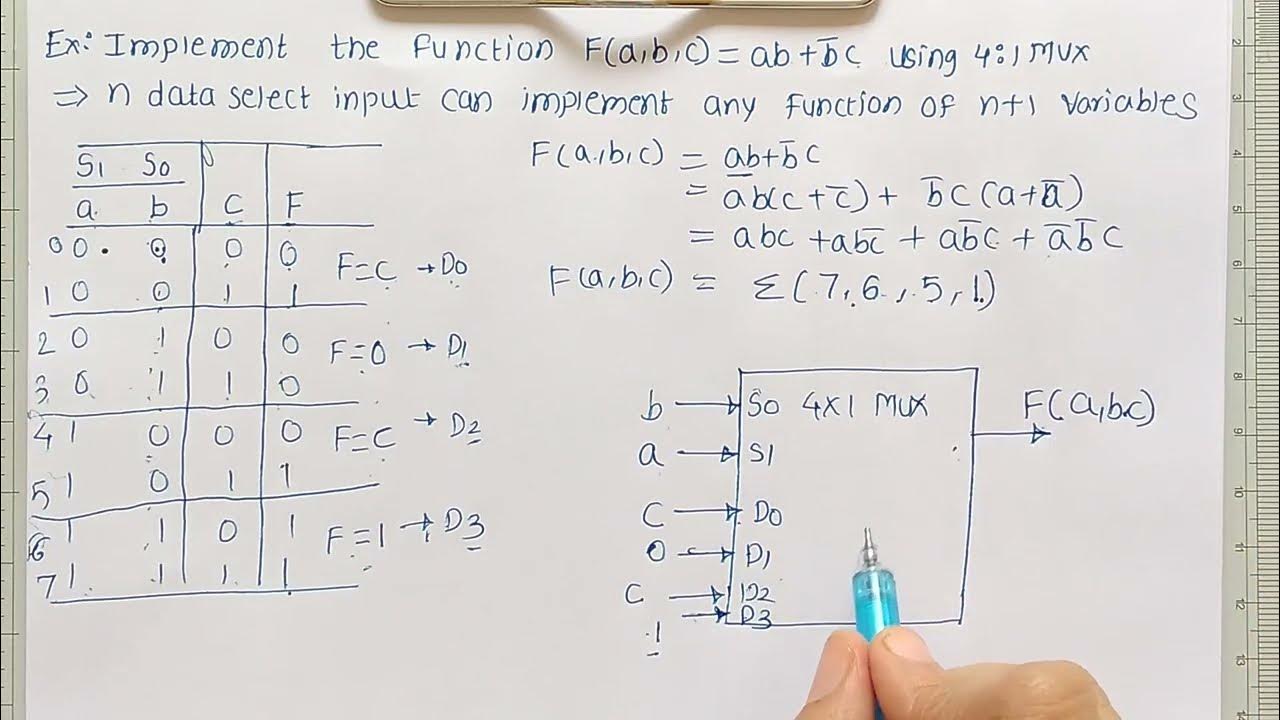 Ex: Implement the function F(a,b,c) = ab + b̅c using 4:1 MUX
⇒ n data select input can implement any function of n+1 variables
S1 S0
a b C F
0 0 0 0 0 F=C → D0
1 0 0 1 1
2 0 1 0 0 F=0 → D1
3 0 1 1 0
4 1 0 0 0 F=C → D2
5 1 0 1 1
6 1 1 0 1 F=1 → D3
7 1 1 1 1
F(a,b,c) = ab+b̅c
= ab(c+c̅) + b̅c(a+a̅)
= abc + abc̅ + ab̅c + a̅b̅c
F(a,b,c) = Σ(7,6,5,1)
b → S0 4X1 MUX F(a,bc)
a → S1
C → D0
0 → D1
C → D2
1 → D3
2
3
4
5
6
7
8
9
10
11
12
13